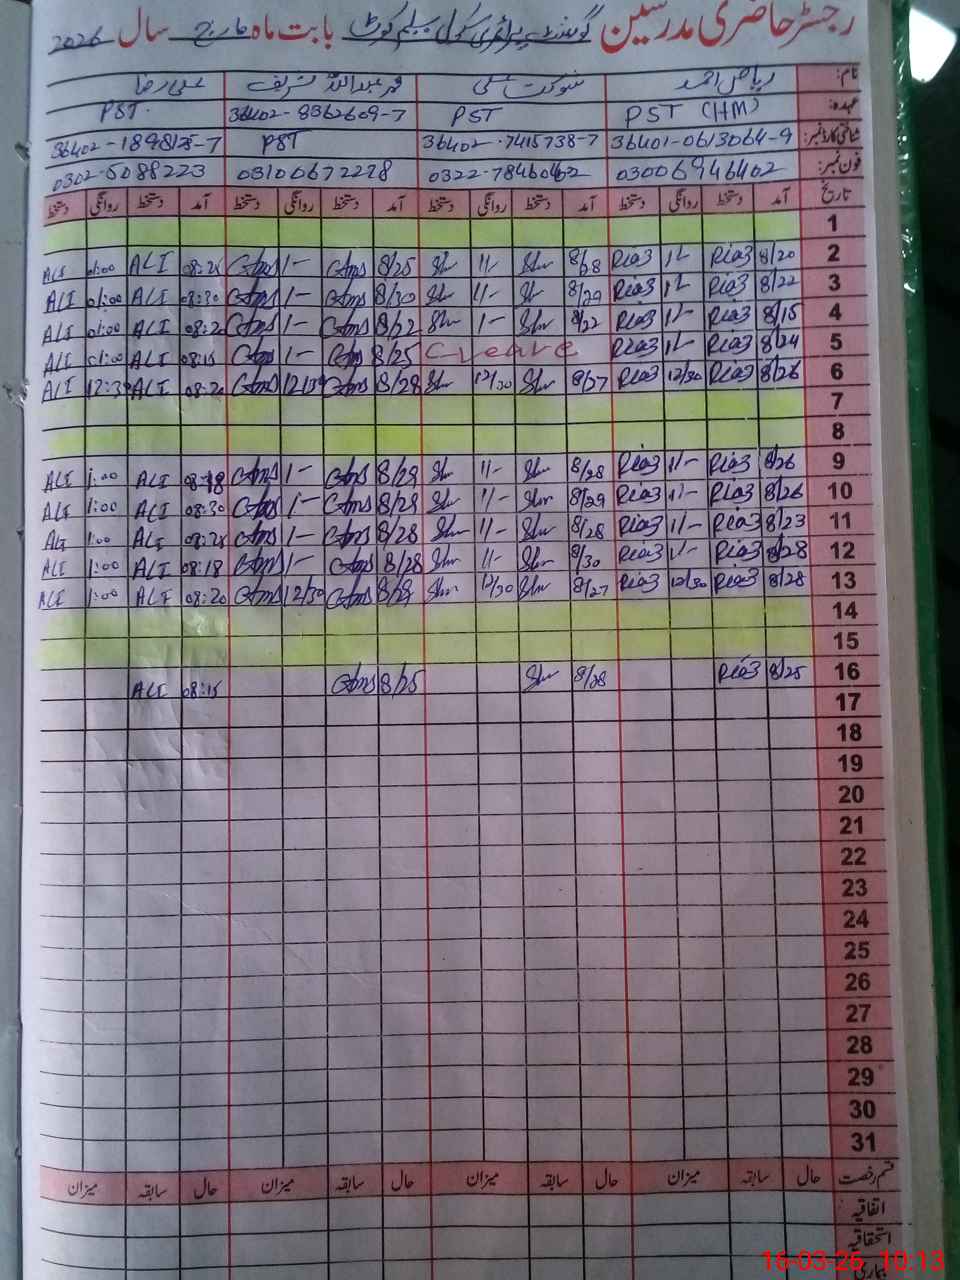 رجسٹر حاضری مدرسین گورنمنٹ پرائمری سکول سلیم کوٹ بابت ماہ مارچ سال 2026
نام: ریاض احمد شوکت علی محمد عبداللہ شریف علی رضا
عہدہ: PST (HM) PST 36402-8362609-7 PST.
شناختی کارڈ نمبر: 36401-0613064-9 36402-7415738-7 PST 36402-1898125-7
فون نمبر: 03006946402 0322-7846062 03100672278 0302-5088223
تاریخ آمد دستخط روانگی دستخط آمد دستخط روانگی دستخط آمد دستخط روانگی دستخط آمد دستخط روانگی دستخط
1
2 8/20 Ria3 1/- Ria3 8/28 Shr 1/- Shr 8/25 1/- 08:25 ALI 01:00 ALI
3 8/22 Ria3 1/- Ria3 8/29 Shr 1/- Shr 8/30 1/- 08:30 ALI 01:00 ALI
4 8/15 Ria3 1/- Ria3 8/22 Shr 1/- Shr 8/22 1/- 08:20 ALI 01:00 ALI
5 8/24 Ria3 1/- Ria3 8/25 1/- 08:15 ALI 01:00 ALI
6 8/26 Ria3 12/30 Ria3 8/27 Shr 12/30 Shr 8/28 12/30 08:20 ALI 12:30 ALI
7
8
9 8/26 Ria3 1/- Ria3 8/28 Shr 1/- Shr 8/29 1/- 08:18 ALI 1:00 ALI
10 8/26 Ria3 1/- Ria3 8/29 Shr 1/- Shr 8/29 1/- 08:30 ALI 1:00 ALI
11 8/23 Ria3 1/- Ria3 8/28 Shr 1/- Shr 8/28 1/- 08:28 ALI 1:00 ALI
12 8/28 Ria3 1/- Ria3 8/30 Shr 1/- Shr 8/28 1/- 08:18 ALI 1:00 ALI
13 8/28 Ria3 12/30 Ria3 8/27 Shr 12/30 Shr 8/29 12/30 08:20 ALI 1:00 ALI
14
15
16 8/25 Ria3 8/28 Shr 8/25 08:15 ALI
17
18
19
20
21
22
23
24
25
26
27
28
29
30
31
قسم رخصت حال سابقہ میزان حال سابقہ میزان حال سابقہ میزان حال سابقہ میزان
اتفاقیہ
استحقاقیہ
بیماری
16-03-26 10:13